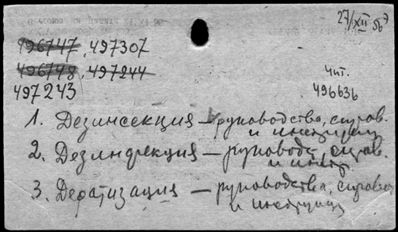 27/XII 56 г
496747, 497307
496748, 497244
497243
чит.
496636
1. Дезинсекция — руководства, справ. и инструкц
2. Дезинфекция — руковод, справ. и инстр
3. Дератизация — руководства, справоч и инструкц